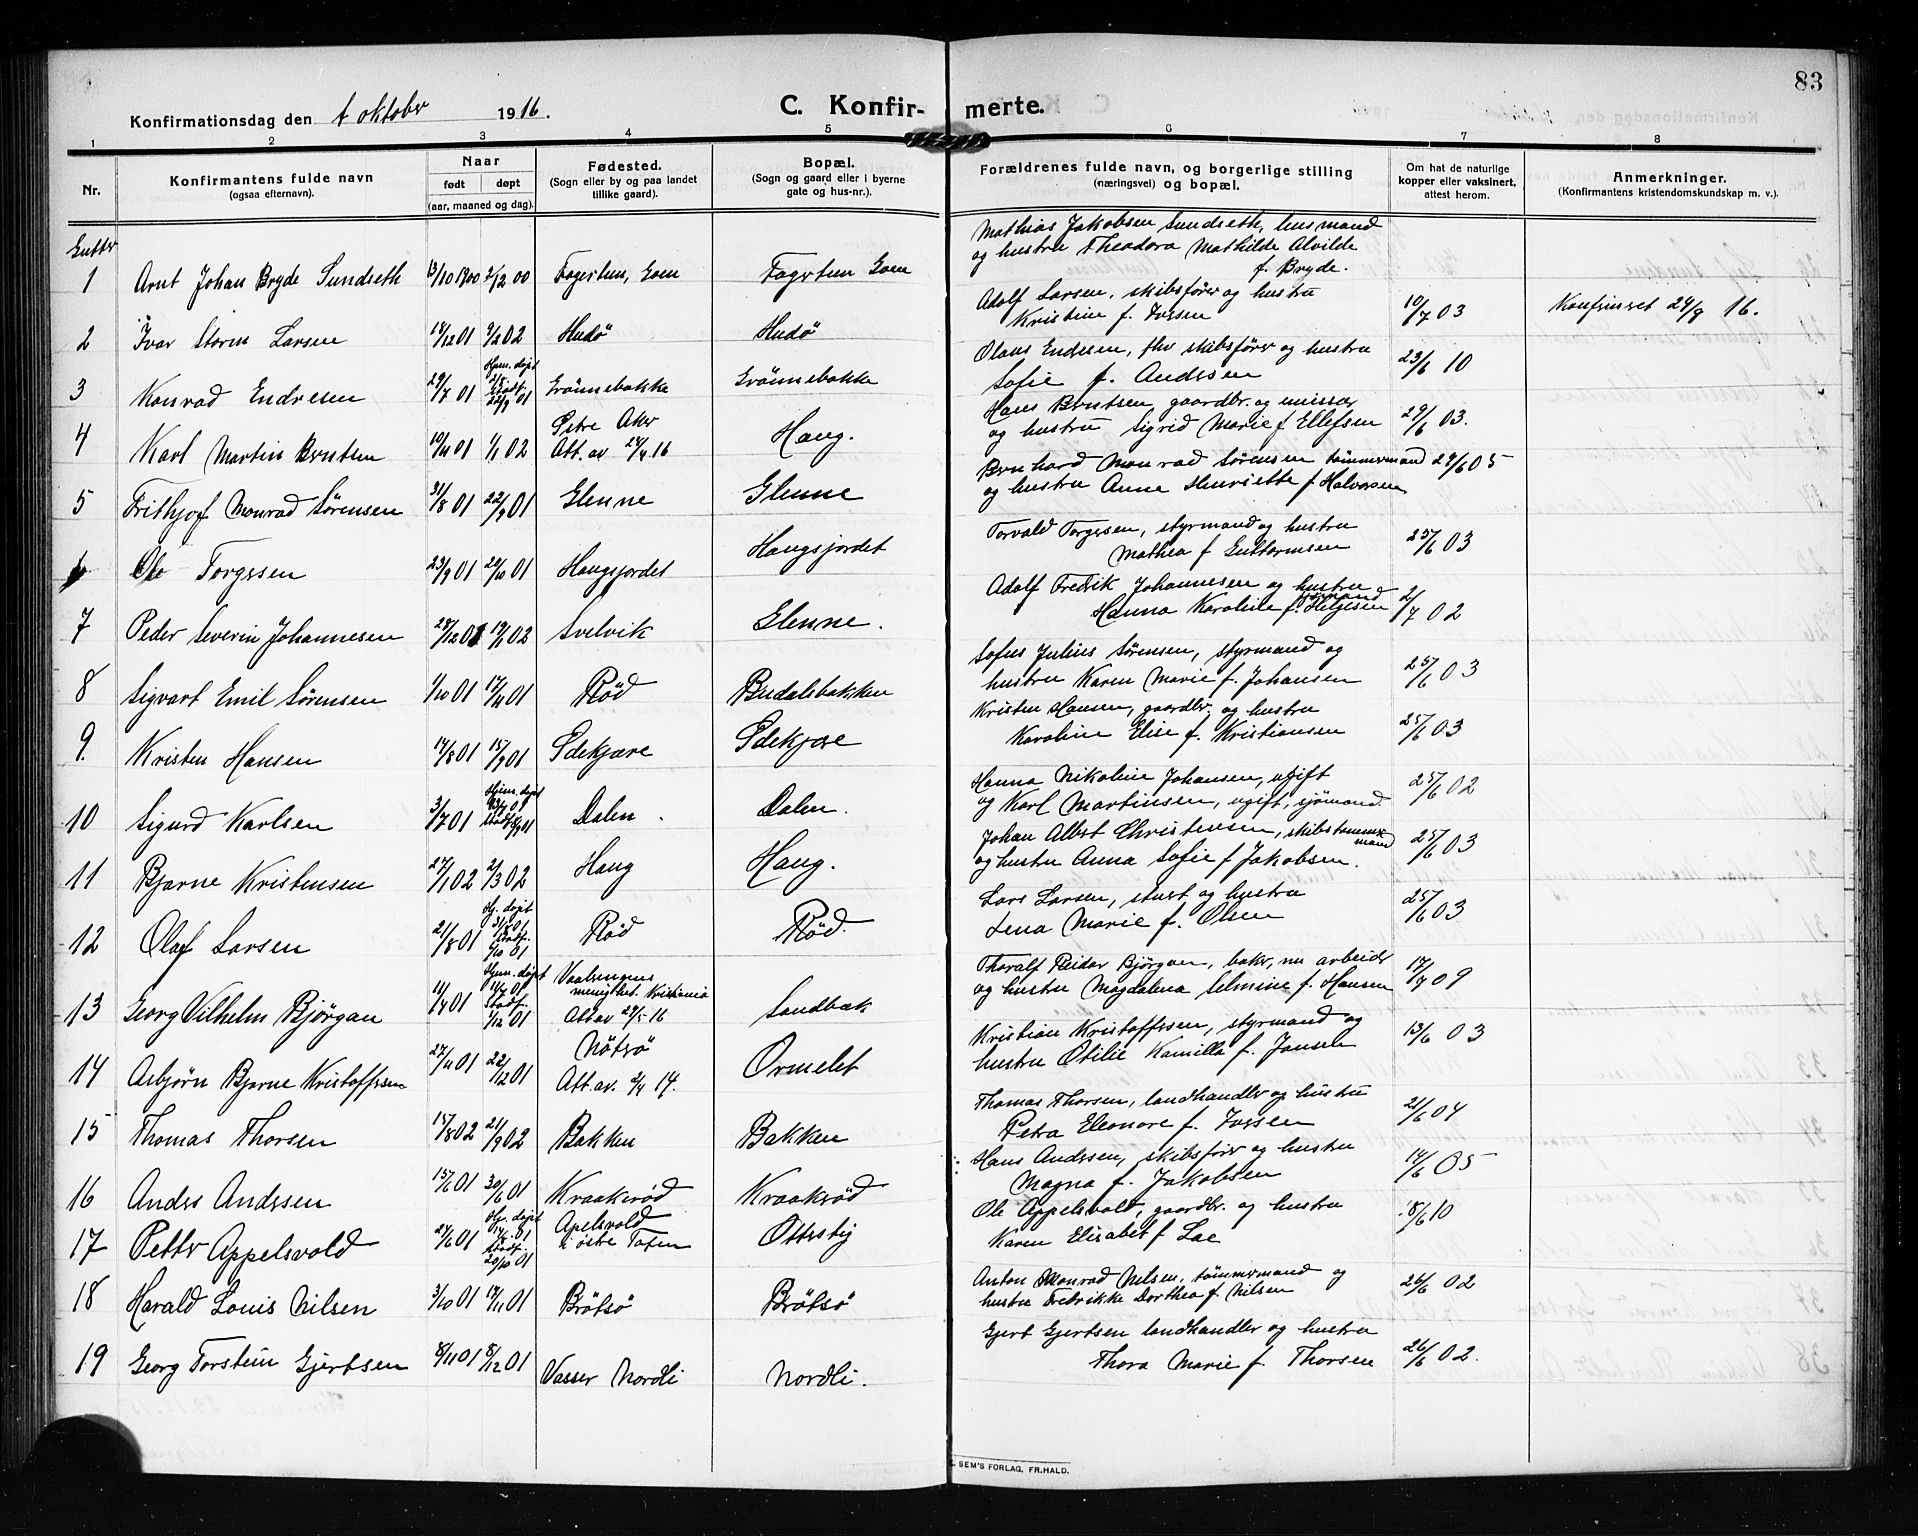 83
Konfirmationsdag den 1 oktober 1916.
C. Konfir- merte.
1 2 3 4 5 6 7 8
Nr.
Konfirmantens fulde navn
(ogsaa efternavn).
Naar
født døpt
(aar, maaned og dag).
Fødested.
(Sogn eller by og paa landet
tillike gaard).
Bopæl.
(Sogn og gaard eller i byerne
gate og hus-nr.).
Forældrenes fulde navn, og borgerlige stilling
(næringsvei) og bopæl.
Om hat de naturlige
kopper eller vaksinert,
attest herom.
Anmerkninger.
(Konfirmantens kristendomskundskap m. v.).
Gutter
Mathias Jakobsen Sundseth, husmand
og hustru Theodora Mathilde Alvilde
f. Bryde.
1 Arnt Johan Bryde Sundseth 13/10 1900 2/12 00 Fagertun, Goen Fagertun Goen
Adolf Larsen, skibsfører og hustru
Kristine f. Iversen 10/7 03 Konfirmert 24/9 16.
2 Ivar Storm Larsen 18/12 01 9/2 02 Hudø Hudø
Olaus Endresen, fhv skibsfører og hustru
Sofie f. Andersen 23/6 10
3 Konrad Endresen 29/7 01 Hjem. døpt 2/8 Stadf. 22/9 01 Grönnebakke Grönnebakke
Hans Berntsen, gaardbr. og emissær
og hustru Sigrid Marie f Ellefsen 29/6 03.
4 Karl Martin Berntsen 10/11 01 1/1 02 Petre Aker Att. av 24/4 16 Haug.
Bernhard Monrad Sørensen tømmermand 29/6 05
og hustru Anne Henriette f Halvorsen
5 Frithjof Monrad Sørensen 31/8 01 22/9 01 Glenne Glenne
Torvald Torgersen, styrmand og hustru
Mathea f Guttormsen 25/6 03
6 Ole Torgersen 23/9 01 20/10 01 Haugsjordet Haugsjordet
Adolf Fredrik Johannesen og hustru
Hanna Karoline f. Helgesen 2/7 02
7 Peder Severin Johannesen 28/12 01 19/1 02 Svelvik Glenne.
Sofus Julius Sørensen, styrmand og
hustru Karen Marie f. Johansen 25/6 03
8 Sigvart Emil Sørensen 1/10 01 17/11 01 Rød Budalsbakken
Kristen Hansen, gaardbr. og hustru
Karoline Elise f. Kristiansen 25/6 03
9. Kristen Hansen 14/8 01 15/9 01 Gdekjære Gdekjære
Hanna Nikoline Johansen, ugift
og Karl Martinsen, ugift, sjømand. 25/6 02
10 Sigurd Karlsen 3/7 01 Hjem. døpt Stadf. 01 Dalen. Dalen.
Johan Albert Christensen, skibstømmermand
og hustru Anna Sofie f Jakobsen. 25/6 03
11 Bjarne Kristensen 27/1 02 2/3 02 Haug Haug.
Lars Larsen, stuert og hustru
Lena Marie f. Olsen 25/6 03
12 Olaf Larsen 21/8 01 Hj. døpt 31/8 01 Stadf. 6/10 01 Rød Rød.
Thoralf Reidar Bjørgan, baker, nu arbeider
og hustru Magdalena Selmine f. Hansen 17/7 09
13 Georg Vilhelm Bjørgan 11/7 01 Hjem. døpt 14/7 01 Stadf. 1/12 01 Vaalerengens menighet. Kristiania Att av 29/5 16 Sandbæk
Kristian Kristoffersen, styrmand og
hustru Otilie Kamilla f. Jansen 13/6 03
14 Asbjørn Bjarne Kristoffersen 27/11 01 22/12 01 Nötrö Att. av. 2/4 14. Ormelet
Thomas Thorsen, landhandler og hustru
Petra Eleonore f. Iversen 21/6 04
15 Thomas Thorsen 15/8 02 21/9 02 Bakken Bakken
Hans Andersen, skibsfører og hustru
Magna f. Jakobsen 14/6 05
16 Anders Andersen 15/6 01 30/6 01 Kraakerød Kraakerød
Ole Appelsvold, gaardbr. og hustru
Karen Elisabet f Lae 18/6 10
17 Petter Appelsvold 27/6 01 Hj. døpt 01 Stadf. 20/10 01 Apelsvold i østre Toten Ottersby
Anton Monrad Nilsen, tømmermand og
hustru Fredrikke Dorthea f. Nilsen 26/6 02
18 Harald Louis Nilsen 3/10 01 17/11 01 Brötsö Brötsö
Gjert Gjertsen landhandler og hustru
Thora Marie f Thorsen 26/6 02.
19 Georg Torstein Gjertsen 8/11 01 8/12 01 Vasser Nordli Nordli.
SEM'S FORLAG, FR.HALD.